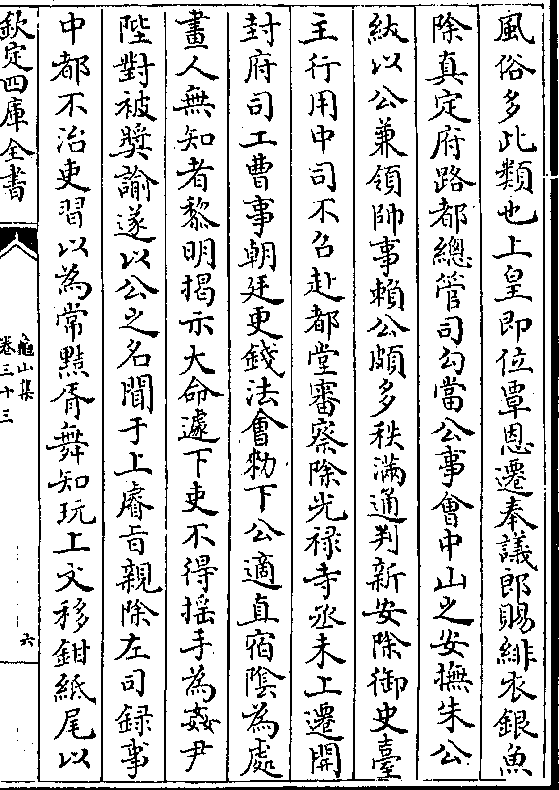 風俗多此類也上皇即位覃恩遷奉議郎賜緋衣銀魚
除真定府路都總管司勾當公事會中山之安撫朱公
紱以公兼領帥事賴公頗多秩滿通判新安除御史臺
主行用申司不召赴都堂審察除光祿寺丞未上遷開
封府司工曹事朝廷更錢法會勅下公適直宿隂為處
畫人無知者黎明揭示大命遽下吏不得揺手為姦尹
陛對被奬諭遂以公之名聞于上睿㫖親除左司録事
中都不治吏習以為常黠胥舞知玩上文移鉗紙尾以
欽定四庫全書
龜山集
卷三十三
六